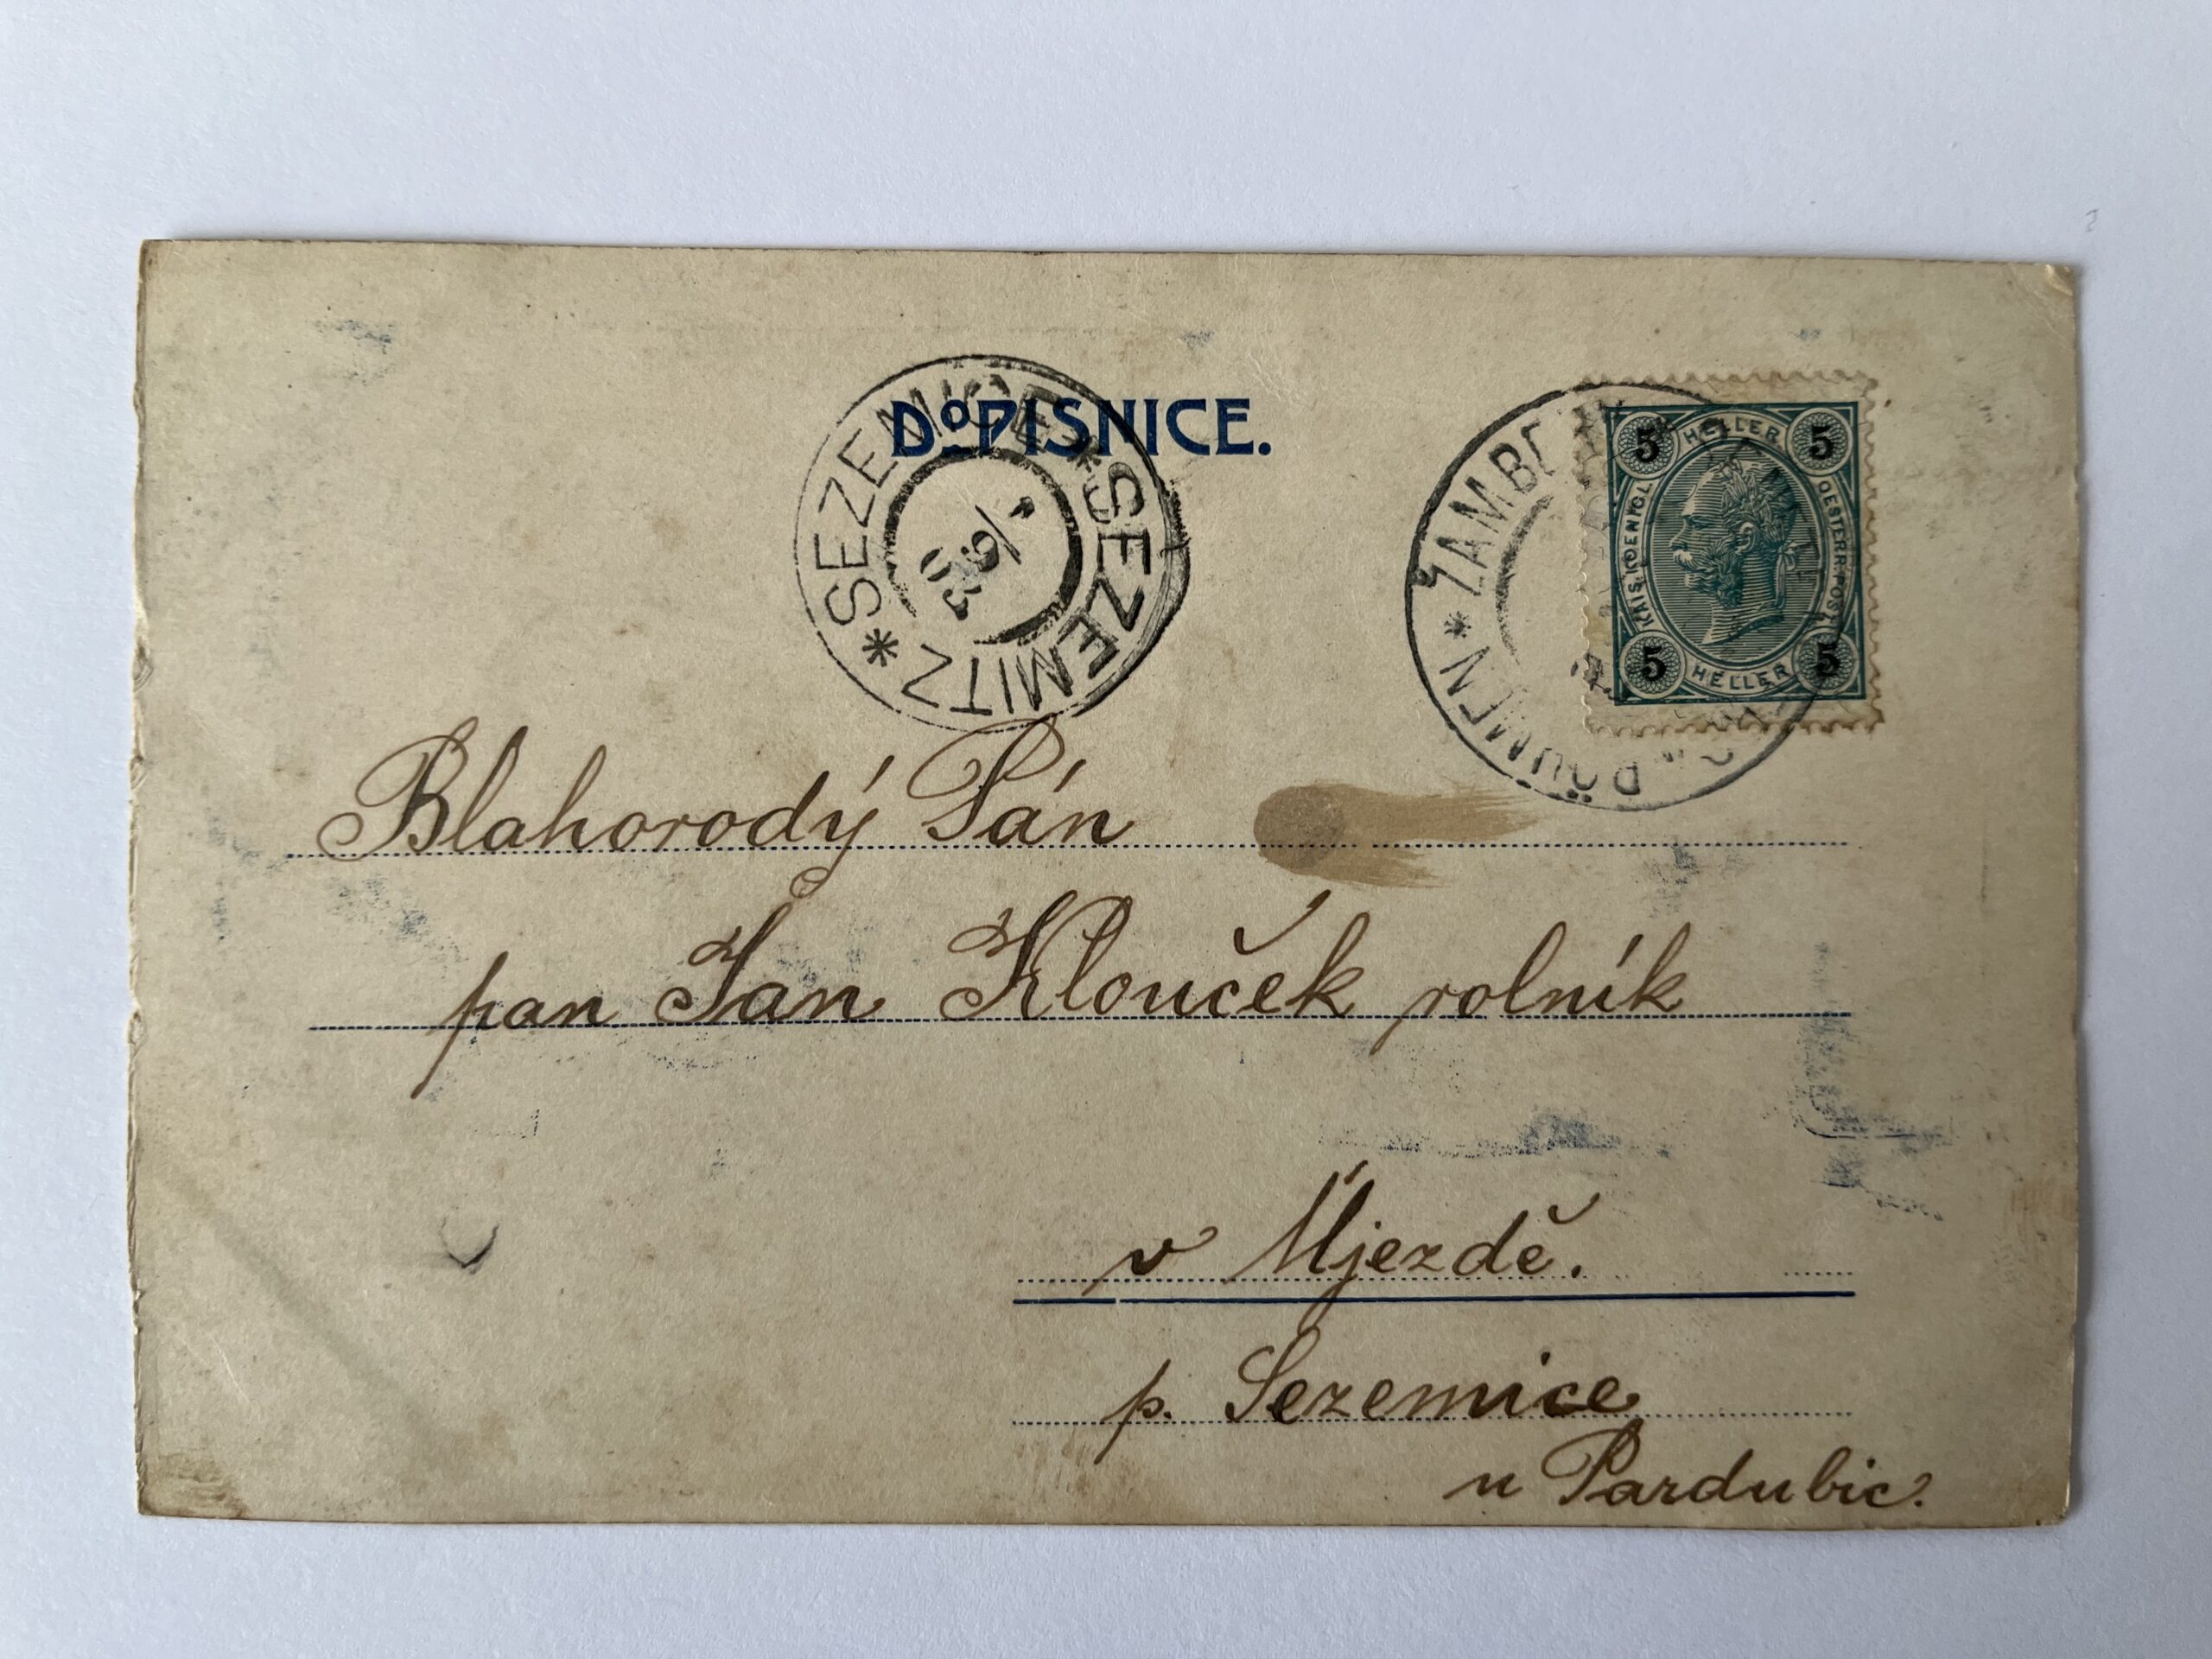 DOPISNICE.
* SEZEMICE * SEZEMITZ
9/
03
* ZAMB
5 HELLER 5
KAIS. KOENIGL. OESTERR. POST
5 HELLER 5
Blahorodý Pán
pan Jan Klouček rolník
v Újezdě.
p. Sezemice
u Pardubic.